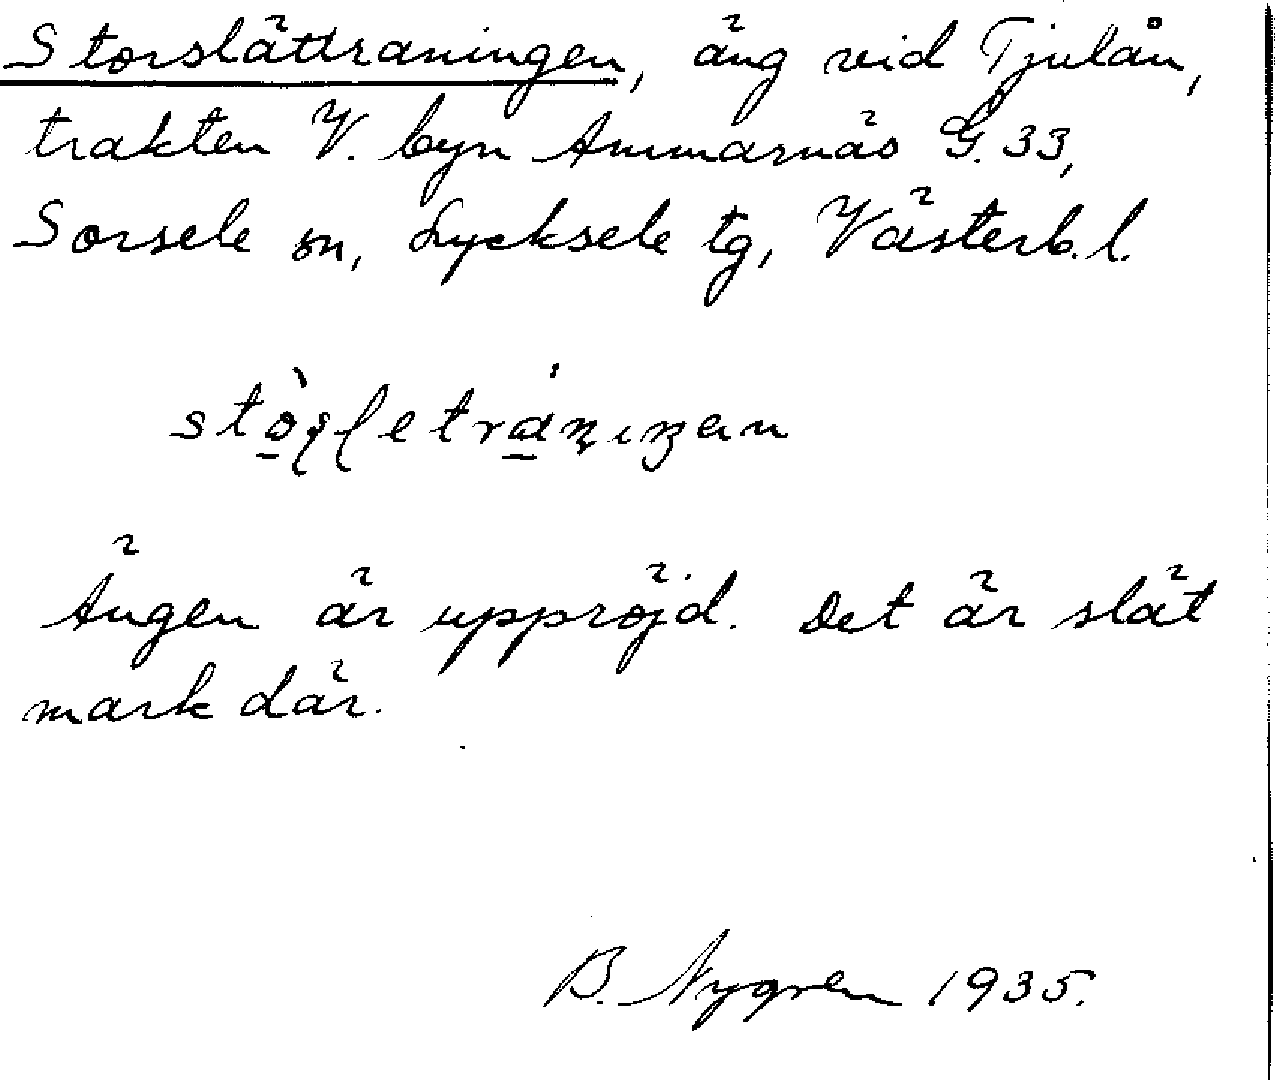 Storslättraningen, äng vid Tjulån,
trakten V. byn Ammarnäs G. 33,
Sorsele sn, Lycksele tg, Västerb.l.
Ängen är uppröjd. Det är slät
mark där.
B. Nygren 1935.